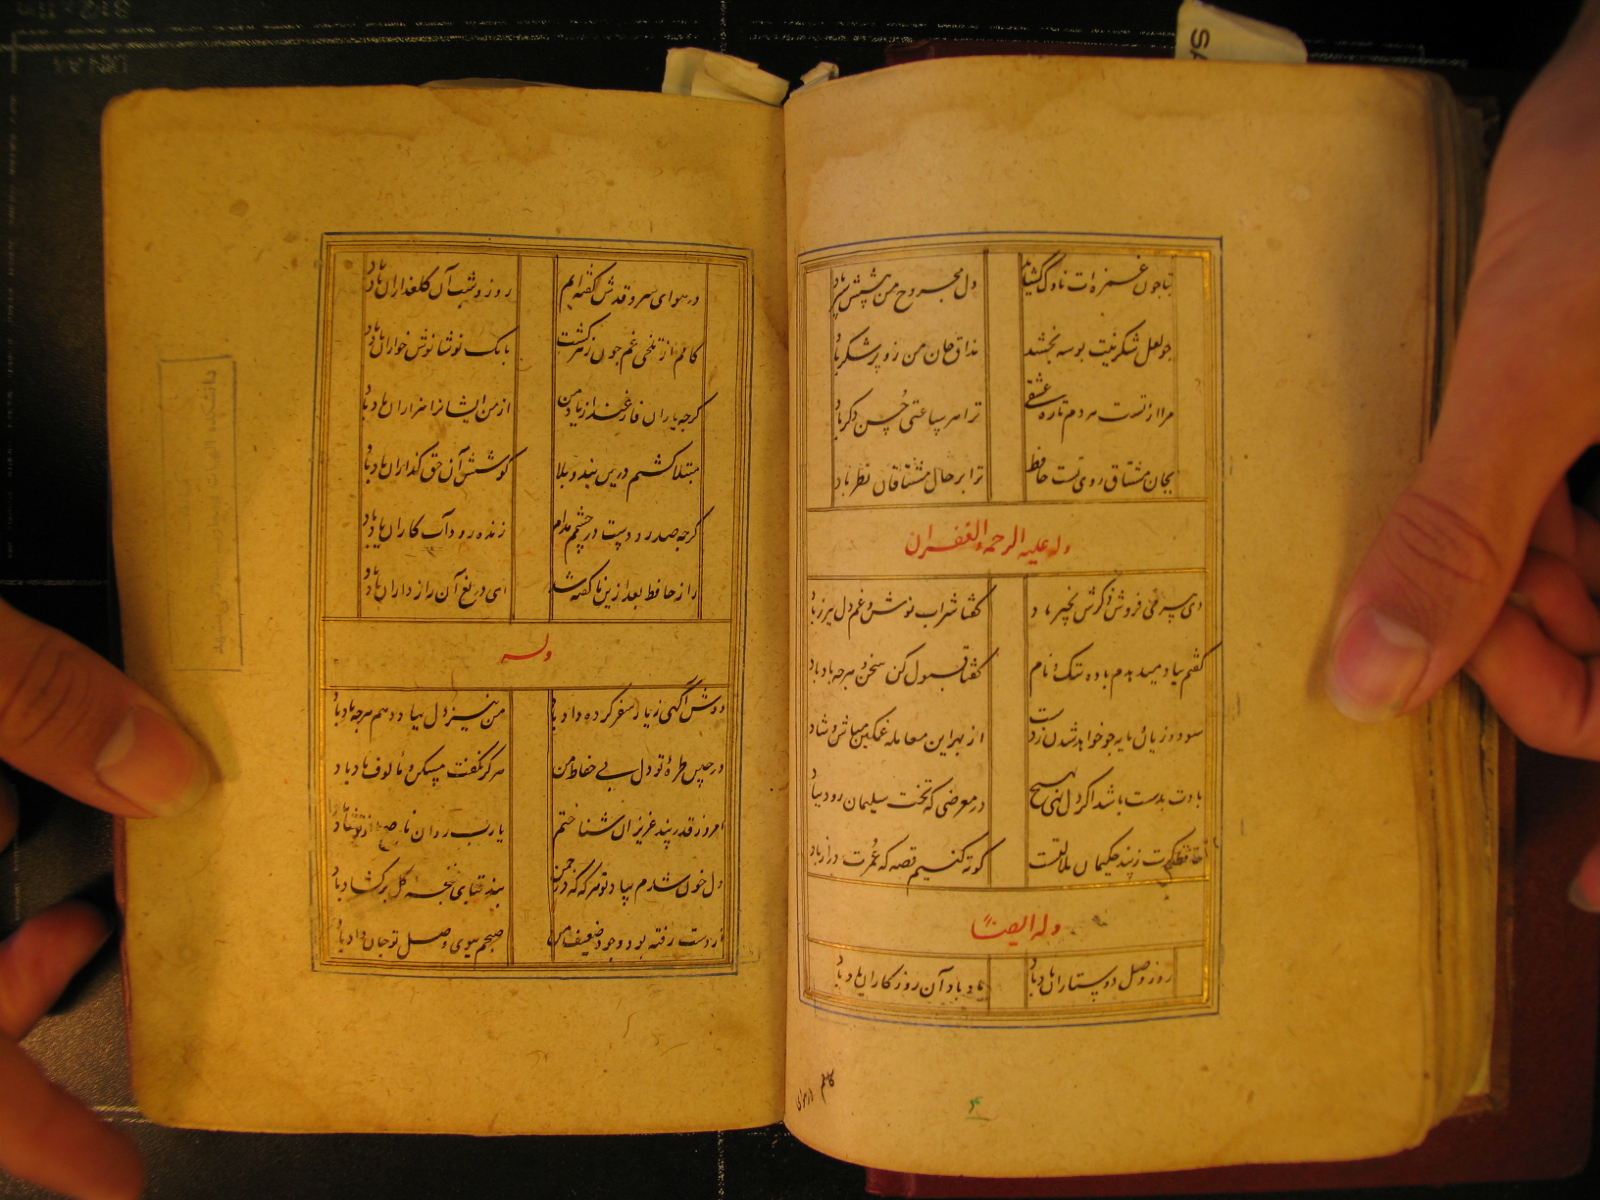 تیا چون غمزه‌ات ناوک گشاید دل مجروح من پیشش سپر باد
جو لعل شکرینت بوسه بخشد مذاق جان من زو پرشکر باد
مرا از تست هر دم تازه عشقی ترا هر ساعتی حسن دکر باد
بجان مشتاق روی تست حافظ ترا بر حال مشتاقان نظر باد
وله علیه الرحمه و الغفران
دی پیر می فروش که ذکرش بخیر باد کفتا شراب نوش و غم دل ببر ز یاد
کفتم بباد میدهدم باده ننک و نام کفتا قبول کن سخن و هرجه باد باد
سود و زیان و مایه جو خواهد شدن ز دست از بهر این معامله غمکین مباش و شاد
بادت بدست باشد اکر دل نهی بهیچ در معرضی که تخت سلیمان رود بباد
حافظ کرت ز پند حکیمان ملالتست کوته کنیم قصه که عمرت دراز باد
وله ایضا
روز وصل دوستداران یاد باد یاد باد آن روزکاران یاد باد
کامم در هوای
در هوای سرو قدش کفته ایم روز و شب آن کلعذاران یاد باد
کامم از تلخی غم جون زهر کشت بانک نوشا نوش خواران یاد باد
کرجه یاران فارغند از یاد من از من ایشانرا هزاران یاد باد
مبتلا کشتم درین بند و بلا کوشش آن حق کذاران یاد باد
کرجه صد رودست در چشمم مدام زنده رود و آب کاران یاد باد
راز حافظ بعد ازین ناکفته شد ای دریغ آن رازداران یاد باد
وله
دوش آکهی ز یار سفر کرده داد باد من نیز دل بباد دهم هرجه باد باد
در جین طره تو دل بی حفاظ من هرکز نکفت مسکن مألوف یاد باد
امروز قدر پند عزیزان شناختم یارب روان ناصح ما از تو شاد باد
دل خون شدم بیاد تو هرکه که در جمن بند قبای غنجه کل برکشاد باد
از دست رفته بود وجود ضعیف من صبحم ببوی وصل تو جان داد باد